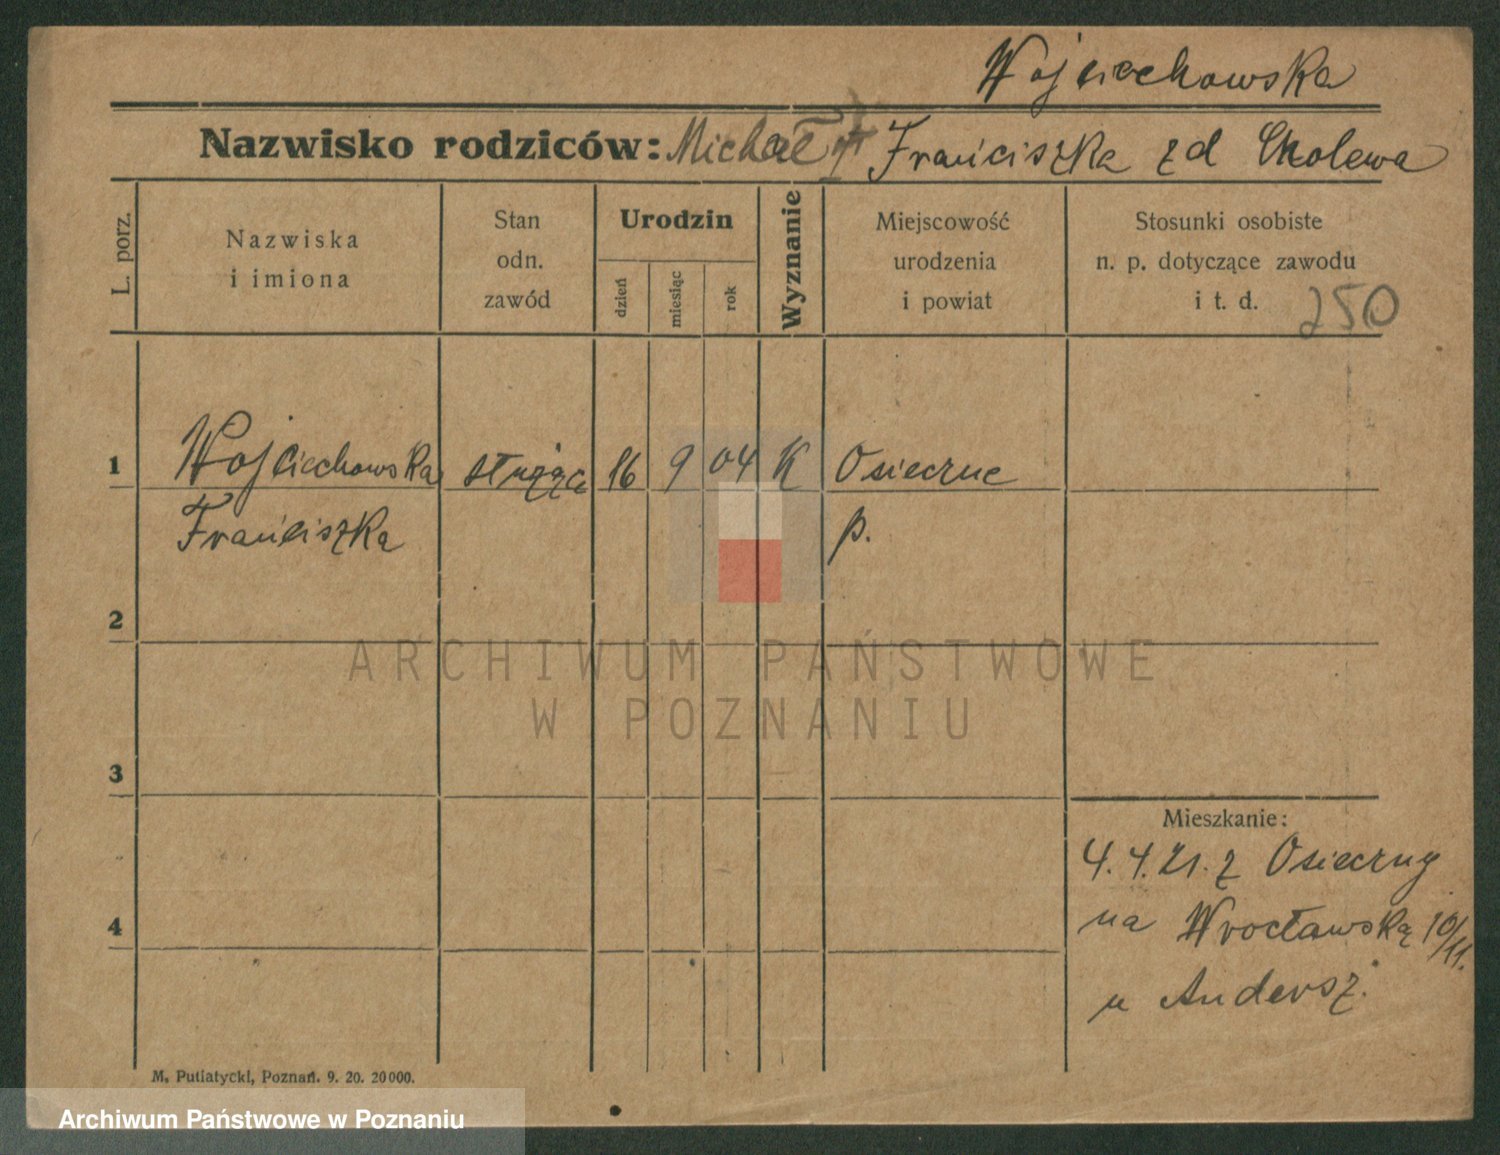 Wojciechowska
Nazwisko rodziców: Michał Franciszka zd Cholewa
L. porz.
Nazwiska
i imiona
Stan
odn.
zawód
Urodzin
dzień
miesiąc
rok
Wyznanie
Miejscowość
urodzenia
i powiat
Stosunki osobiste
n. p. dotyczące zawodu
i t. d. 250
1 Wojciechowska służąca 16 9 04 K Osieczne
Franciszka p.
2
3
4
Mieszkanie:
4.4.21. z Osieczny
na Wrocławską 10/11.
u Andersz.
M. Putiatycki, Poznań. 9. 20. 20000.
ARCHIWUM PAŃSTWOWE
W POZNANIU
Archiwum Państwowe w Poznaniu